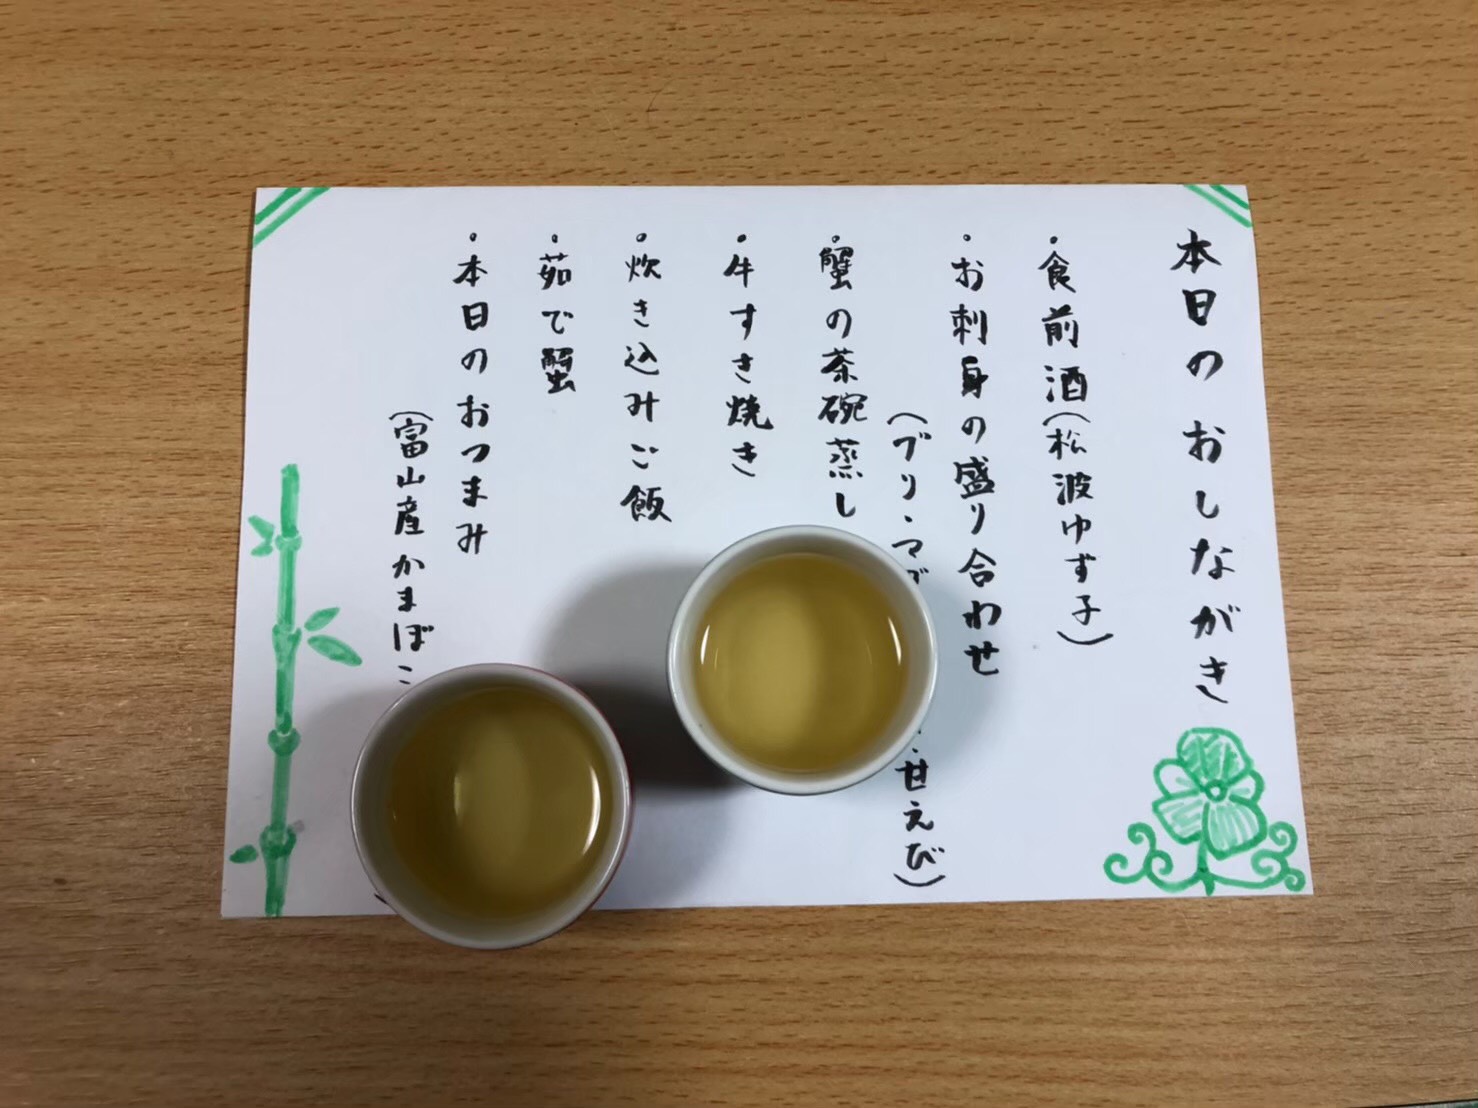 本日のおしながき
・食前酒(松波ゆず子)
・お刺身の盛り合わせ
(ブリ・マグ ・甘えび)
・蟹の茶碗蒸し
・牛すき焼き
・炊き込みご飯
・茹で蟹
・本日のおつまみ
(富山産かまぼこ